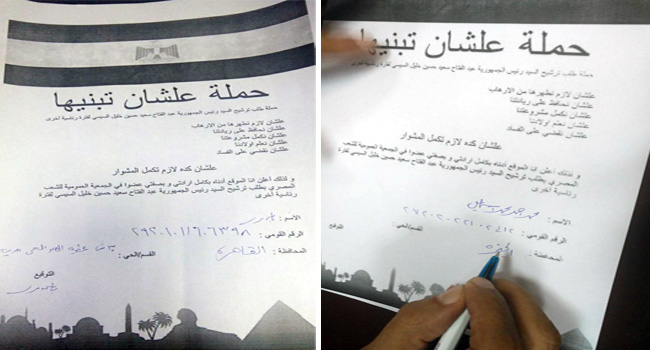 حملة علشان تبنيها
حملة طلب ترشيح السيد رئيس الجمهورية عبد الفتاح سعيد حسين خليل السيسي لفترة رئاسية أخرى
علشان لازم نطهرها من الارهاب
علشان نحافظ على ريادتنا
علشان نكمل مشروعتنا
علشان نعلم اولادنا
علشان نقضي على الفساد
علشان كده لازم تكمل المشوار
و ذلك أعلن انا الموقع أدناه بكامل ارادتي و بصفتي عضوا في الجمعية العمومية للشعب
المصري بطلب ترشيح السيد رئيس الجمهورية عبد الفتاح سعيد حسين خليل السيسي لفترة
رئاسية أخرى
الاسم :
الرقم القومي :
المحافظة : القاهرة القسم/الحي:
التوقيع
حملة علشان تبنيها
حملة طلب ترشيح السيد رئيس الجمهورية عبد الفتاح سعيد حسين خليل السيسي لفترة رئاسية أخرى
علشان لازم نطهرها من الارهاب
علشان نحافظ على ريادتنا
علشان نكمل مشروعتنا
علشان نعلم اولادنا
علشان نقضي على الفساد
علشان كده لازم تكمل المشوار
و ذلك أعلن انا الموقع أدناه بكامل ارادتي و بصفتي عضوا في الجمعية العمومية للشعب
المصري بطلب ترشيح السيد رئيس الجمهورية عبد الفتاح سعيد حسين خليل السيسي لفترة
رئاسية أخرى
الاسم :
الرقم القومي :
المحافظة : الجيزه القسم/الحي:
التوقيع